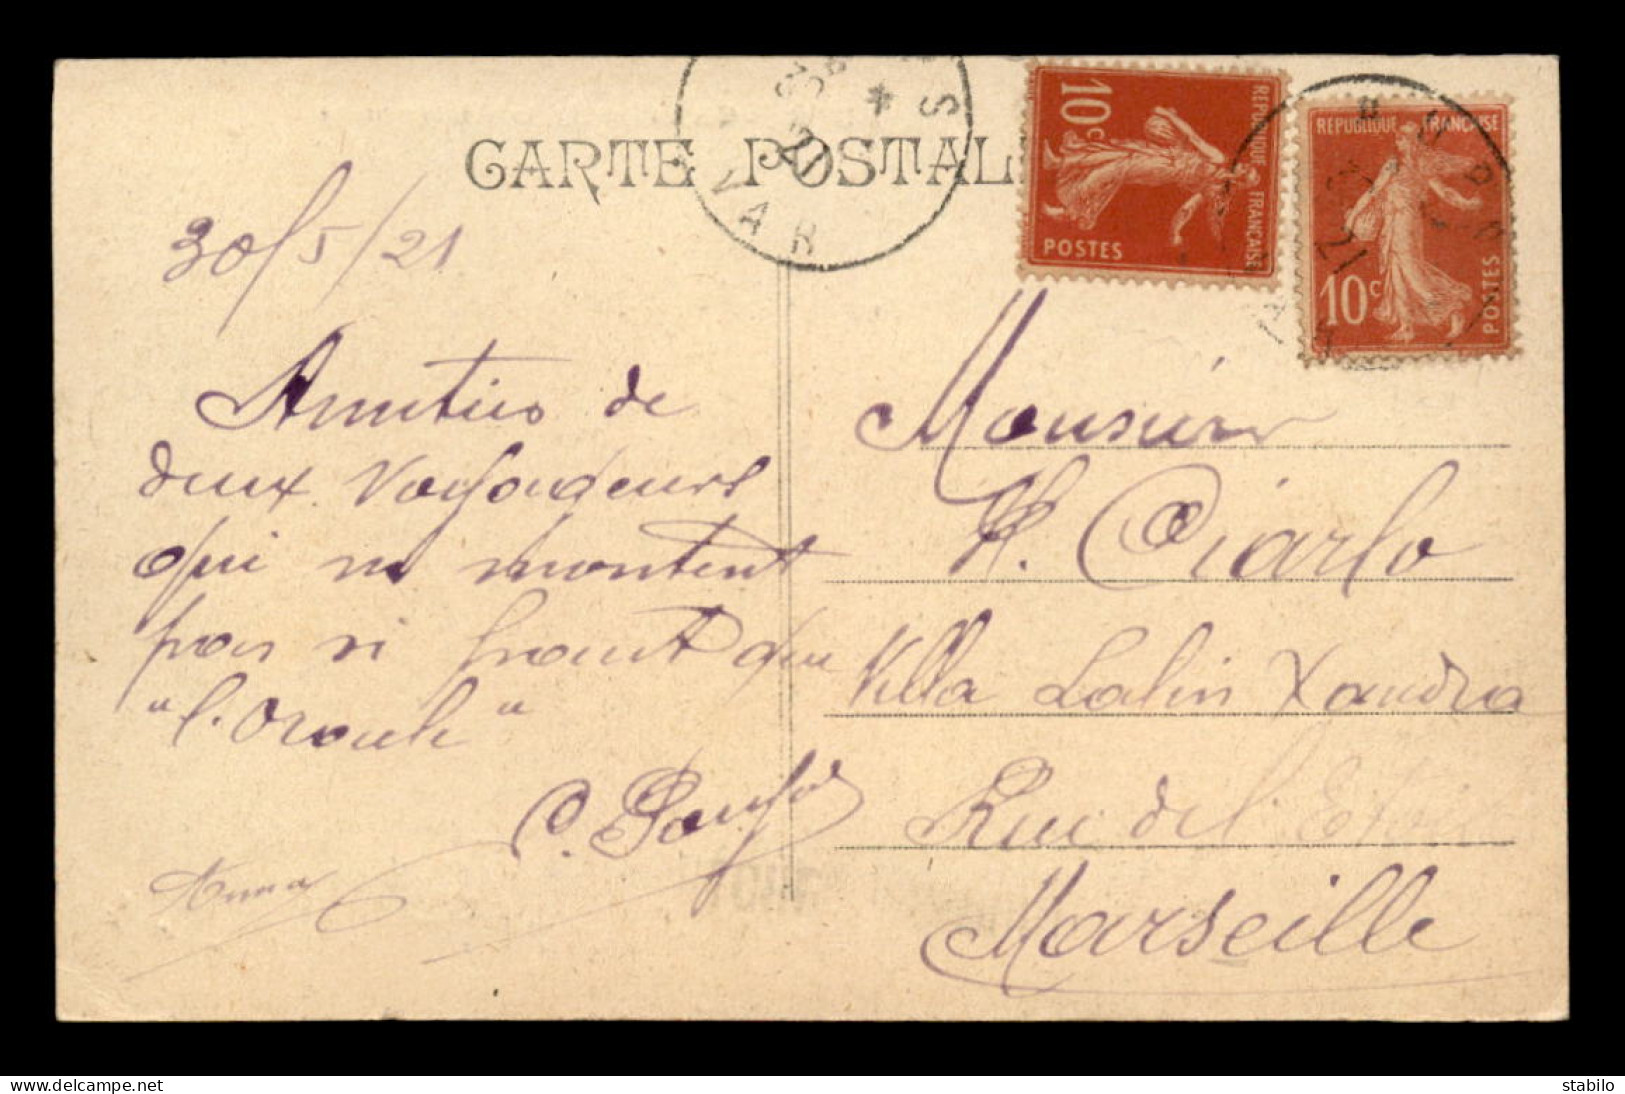 CARTE POSTAL
VAR
10c
REPUBLIQUE FRANÇAISE
POSTES
REPUBLIQUE FRANÇAISE
10c
POSTES
30/5/21
Amitiés de
deux Voyageurs
qui ne montent
pas si haut que
"l'Oronte"
C.
Anna
Monsieur
H. Ciarlo
Villa Lalin Xandra
Rue de l'
Marseille
www.delcampe.net
stabilo